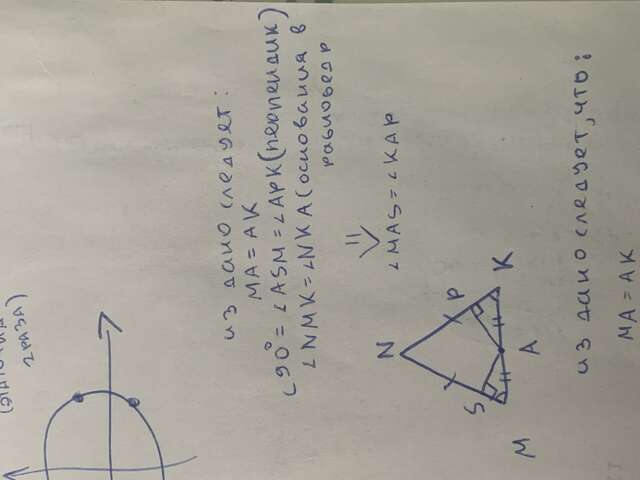 2 раза)
из дано следует:
MA = AK
∠90° = ∠ASM = ∠APK (перпендик)
∠NMK = ∠NKA (основания в
равнобедр
⇓
∠MAS = ∠KAP
N
S
P
M
A
K
из дано следует, что:
MA = AK